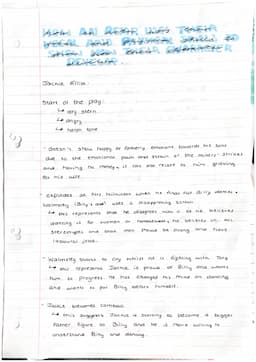 HOW AN ACTOR USES THEIR
VOCAL AND PHYSICAL SKILLS TO
SHOW HOW THEIR CHARACTER
Jackie Elliot:
Start of the play:
↳ very stern
↳ angry
↳ harsh tone
• Doesn't show happy or fatherly emotions towards his sons
due to the emotional pain and strain of the miners' strikes
and having no money, it can also relate to him grieving
for his wife.
• Explodes at Mrs Wilkinson when he finds out Billy danced.
(Billy's dad) uses a disapproving
↳ this represents that he disagrees with it as he believes
dancing is for women or homosexuals, he believes in
stereotypes and that men should be strong and have
jobs.
starts to cry whilst he is fighting with Tony
↳ this represents Jackie is proud of Billy and wants
him to progress. He has changed his mind on dancing
and wants to put Billy before himself.
• Jackie becomes
↳ this suggests Jackie is starting to become a bigger
father figure to Billy and he is more willing to
understand Billy and dancing.